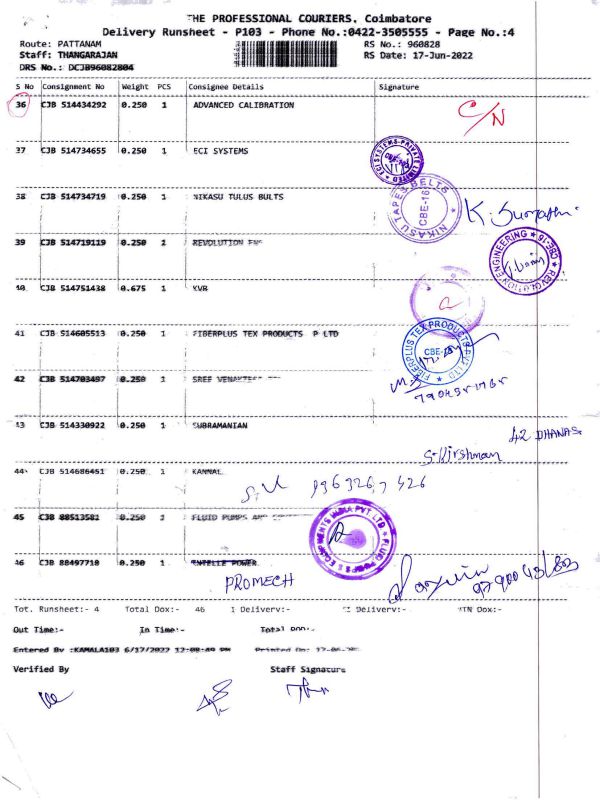 THE PROFESSIONAL COURIERS, Coimbatore
Delivery Runsheet - P103 - Phone No.:0422-3505555 - Page No.:4
Route: PATTANAM RS No.: 960828
Staff: THANGARAJAN RS Date: 17-Jun-2022
DRS No.: DCJB96082804
S No Consignment No Weight PCS Consignee Details Signature
36 CJB 514434292 0.250 1 ADVANCED CALIBRATION C/N
37 CJB 514734655 0.250 1 ECI SYSTEMS
ECI SYSTEMS PRIVATE LIMITED
38 CJB 514734719 0.250 1 NIKASU TULUS BULTS
NIKASU TAPES BELTS CBE-16
39 CJB 514719119 0.250 1 REVOLUTION ENG
REVOLUTION ENGINEERING CBE-16
40 CJB 514751438 0.675 1 KVB
41 CJB 514605513 0.250 1 FIBERPLUS TEX PRODUCTS P LTD
FIBERPLUS TEX PRODUCTS PVT LTD
42 CJB 514703497 0.250 1 SREE
43 CJB 514330922 0.250 1 SUBRAMANIAN
42 DHANAS
44 CJB 514686451 0.250 1 KANNAL
45 CJB 88513581 0.250 1 FLUID PUMPS AND
FLUID PUMPS & EQUIPMENTS INDIA PVT LTD
46 CJB 88497718 0.250 1 ENTELLE POWER
PROMECH
Tot. Runsheet:- 4 Total Dox:- 46 Delivery:- Delivery:- Dox:-
Out Time:- In Time:- Total
Entered By :KAMALA103 6/17/2022 12:08:49 PM Printed On:
Verified By Staff Signature